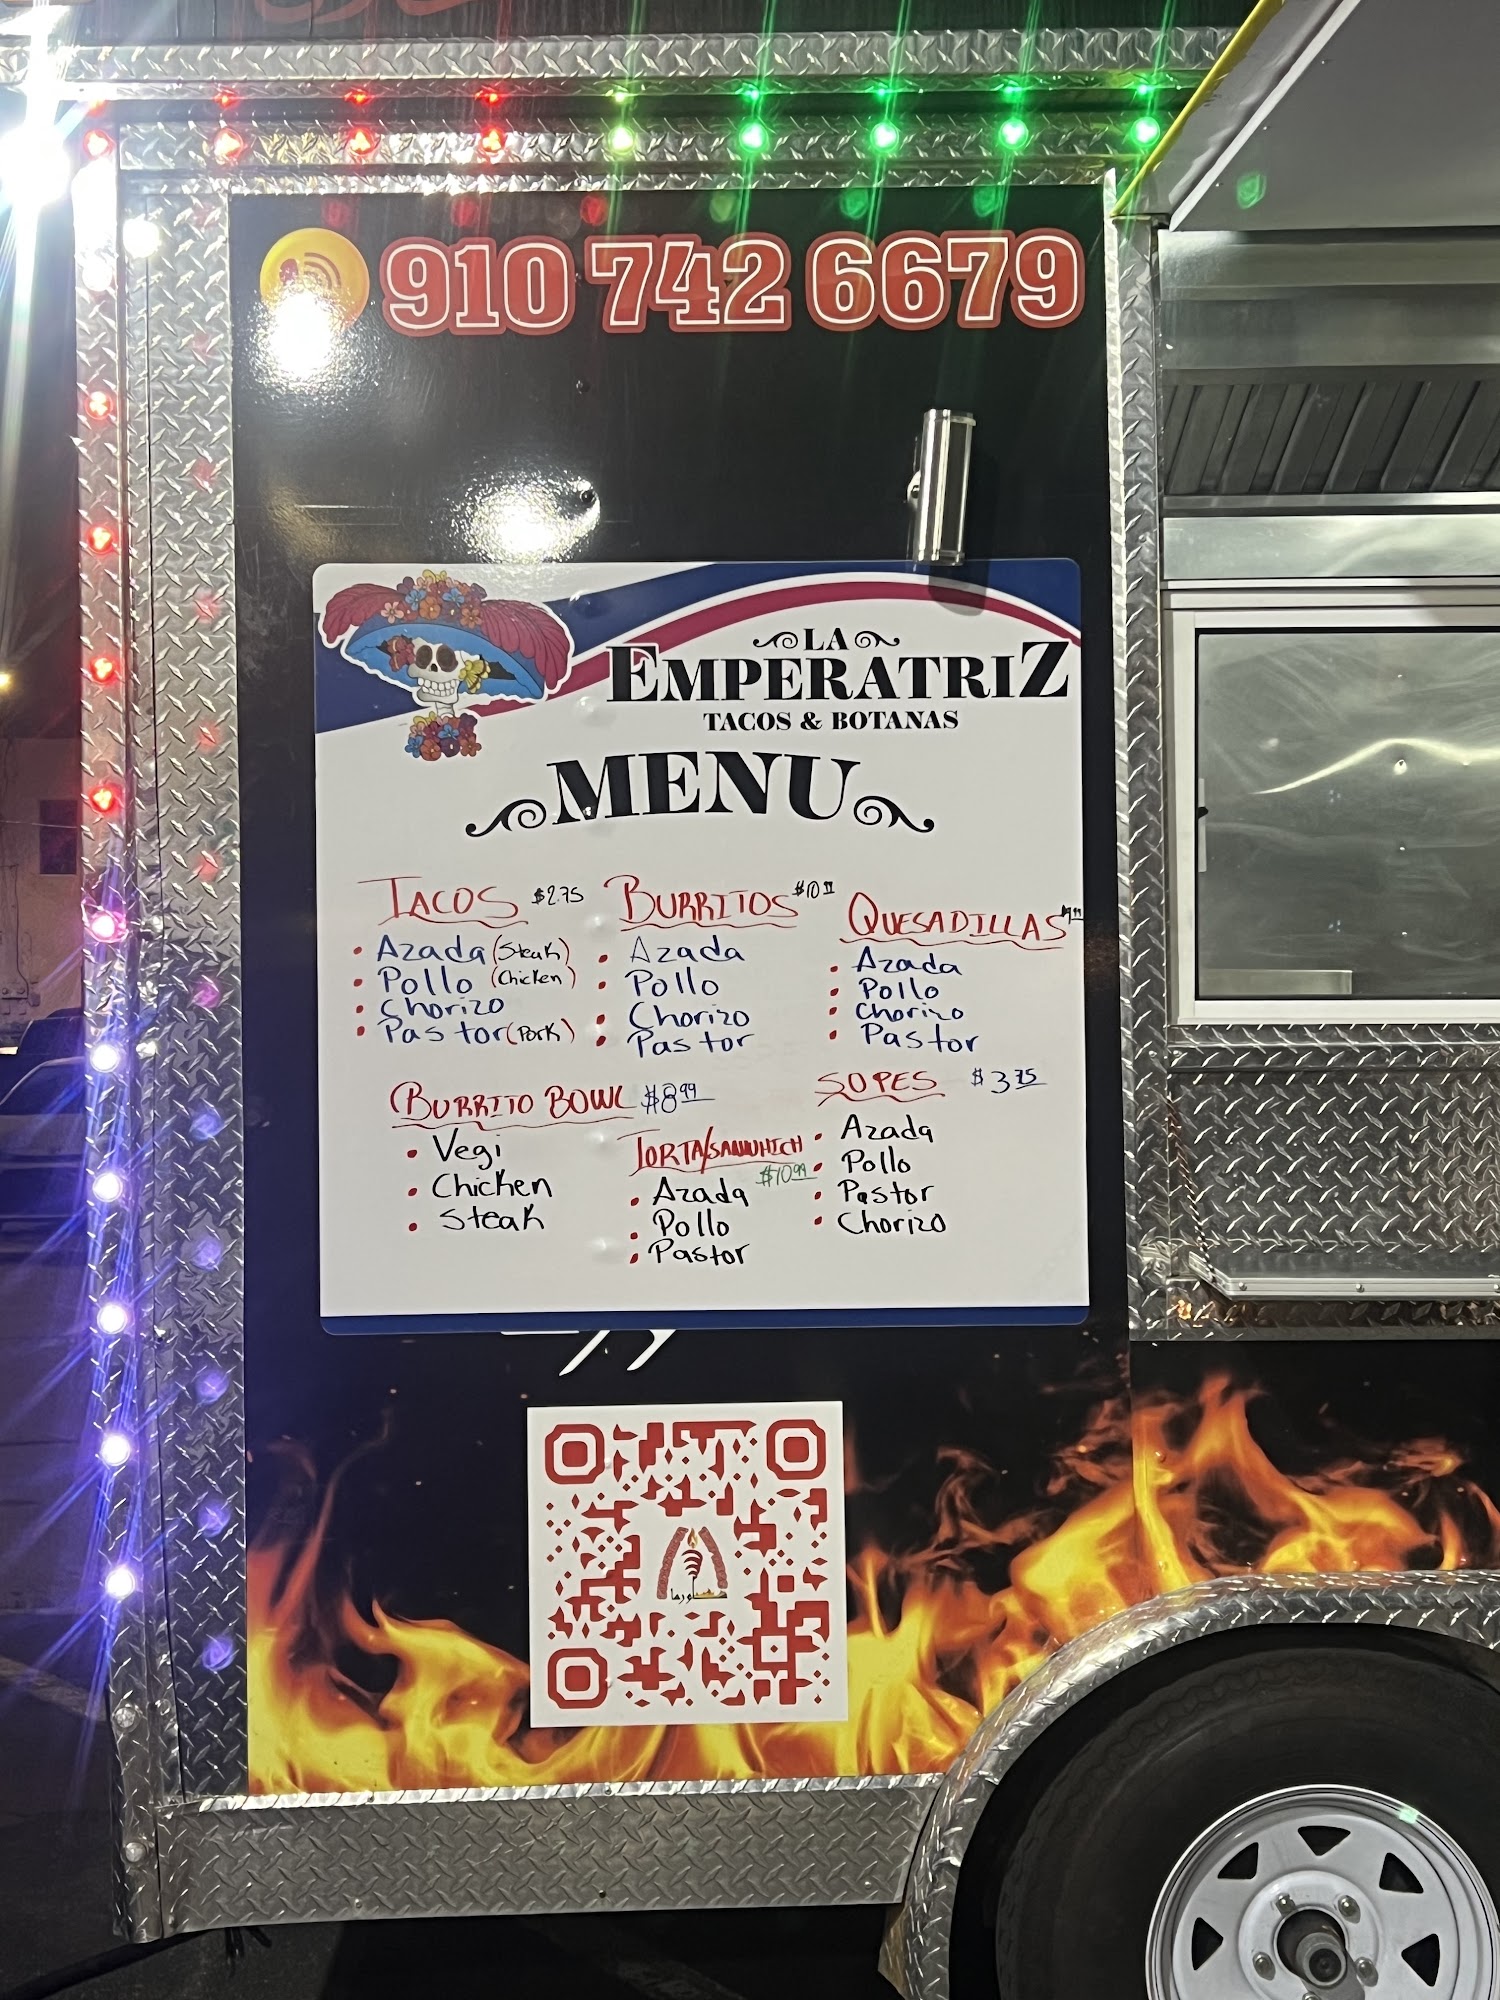 910 742 6679
LA
EMPERATRIZ
TACOS & BOTANAS
MENU
TACOS $2.75
• Azada (Steak)
• Pollo (Chicken)
• Chorizo
• Pastor (Pork)
BURRITOS
• Azada
• Pollo
• Chorizo
• Pastor
QUESADILLAS
• Azada
• Pollo
• Chorizo
• Pastor
BURRITO BOWL $8.99
• Vegi
• Chicken
• Steak
TORTA/SANWHICH
$10.99
• Azada
• Pollo
• Pastor
SOPES $3.75
• Azada
• Pollo
• Pastor
• Chorizo